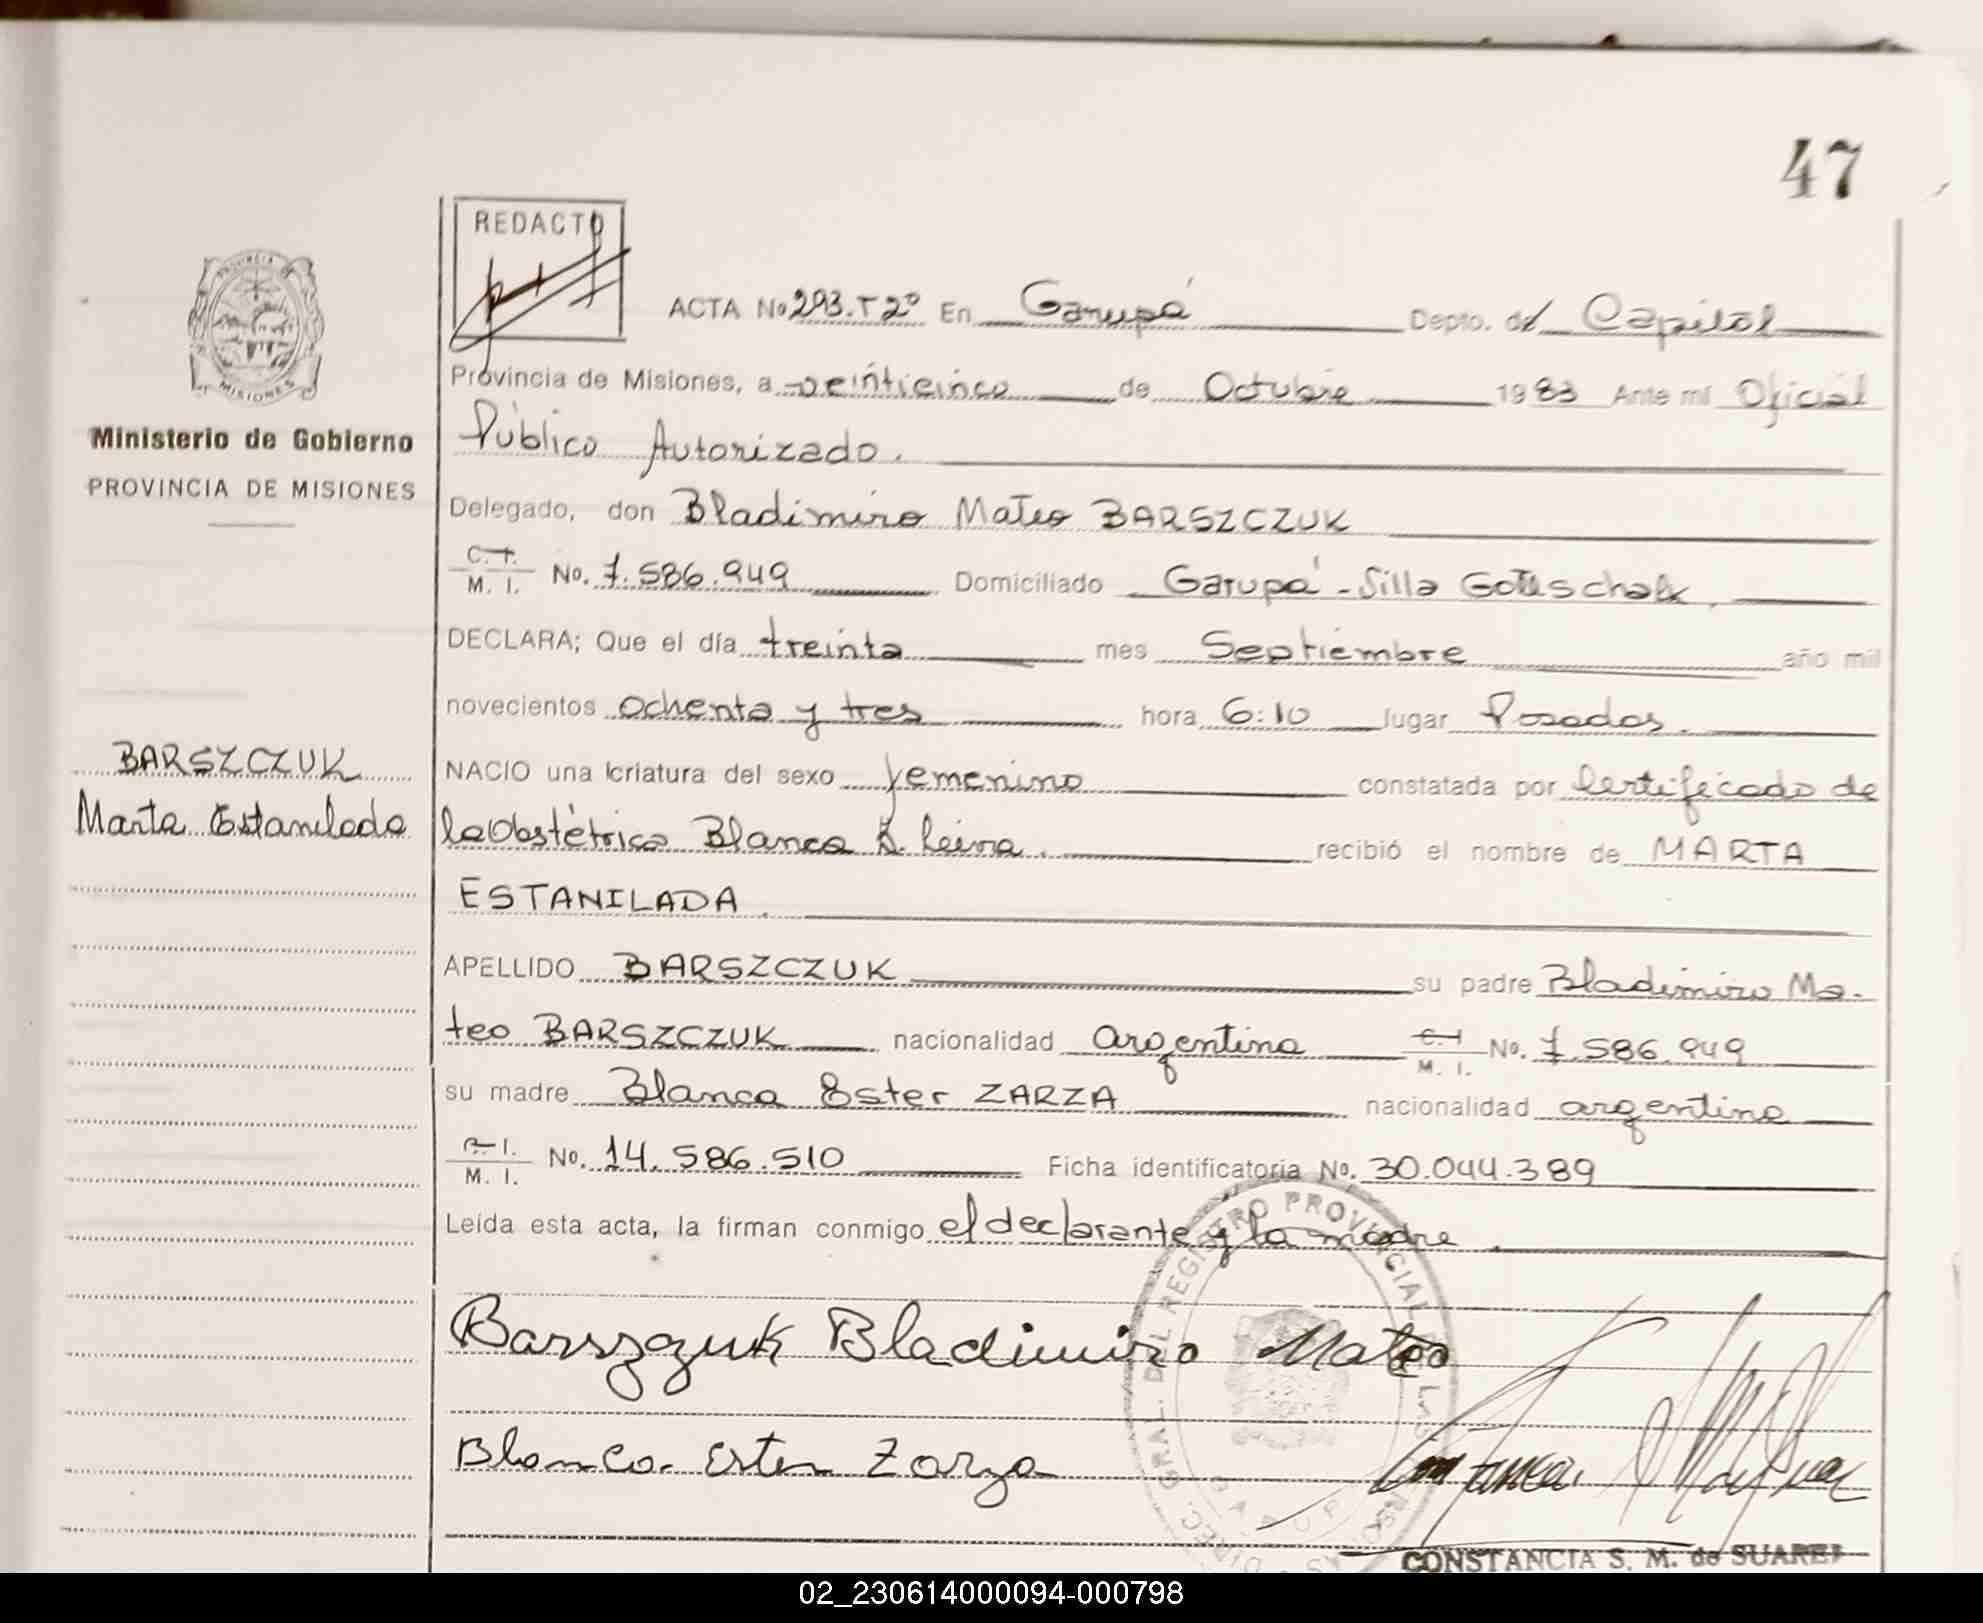 47
REDACTO
PROVINCIA DE
MISIONES
Ministerio de Gobierno
PROVINCIA DE MISIONES
BARSZCZUK
Marta Estanilada
ACTA No 293.T2º En Garupá Depto. del Capital
Provincia de Misiones, a veinticinco de Octubre 1983 Ante mí Oficial
Público Autorizado.
Delegado, don Bladimiro Mateo BARSZCZUK
M. I. No. 7.586.949 Domiciliado Garupá - Silla Gottschalk.
DECLARA; Que el día treinta mes Septiembre año mil
novecientos ochenta y tres hora 6:10 lugar Posadas.
NACIO una criatura del sexo femenino constatada por Certificado de
la Obstétrica Blanca Leiva. recibió el nombre de MARTA
ESTANILADA.
APELLIDO BARSZCZUK su padre Bladimiro Ma-
teo BARSZCZUK nacionalidad argentina C. I. M. I. No. 7.586.949
su madre Blanca Ester ZARZA nacionalidad argentina
M. I. No. 14.586.510 Ficha identificatoria No. 30.044.389
Leída esta acta, la firman conmigo el declarante y la madre.
Barszczuk Bladimiro Mateo
Blanca Ester Zarza
DIREC. GRAL. DEL REGISTRO PROVINCIAL DE LAS
CONSTANCIA S. M. de SUAREZ
02_230614000094-000798